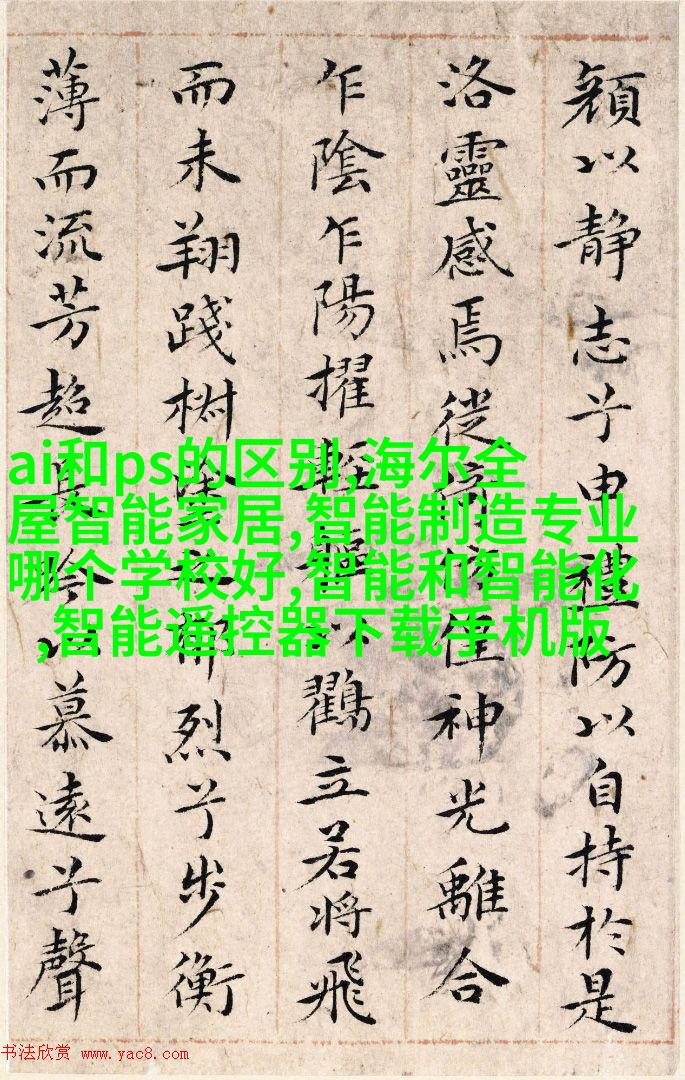 顏以静志兮申禮防以自持於是
洛靈感焉徙神光離合
乍陰乍陽擢輕軀以鸛立若將飛
而未翔踐椒烈兮步衡
薄而流芳超長吟以慕遠兮聲
ai和ps的区别,海尔全
屋智能家居,智能制造专业
哪个学校好,智能和智能化
,智能遥控器下载手机版
书法欣赏 www.yac8.com